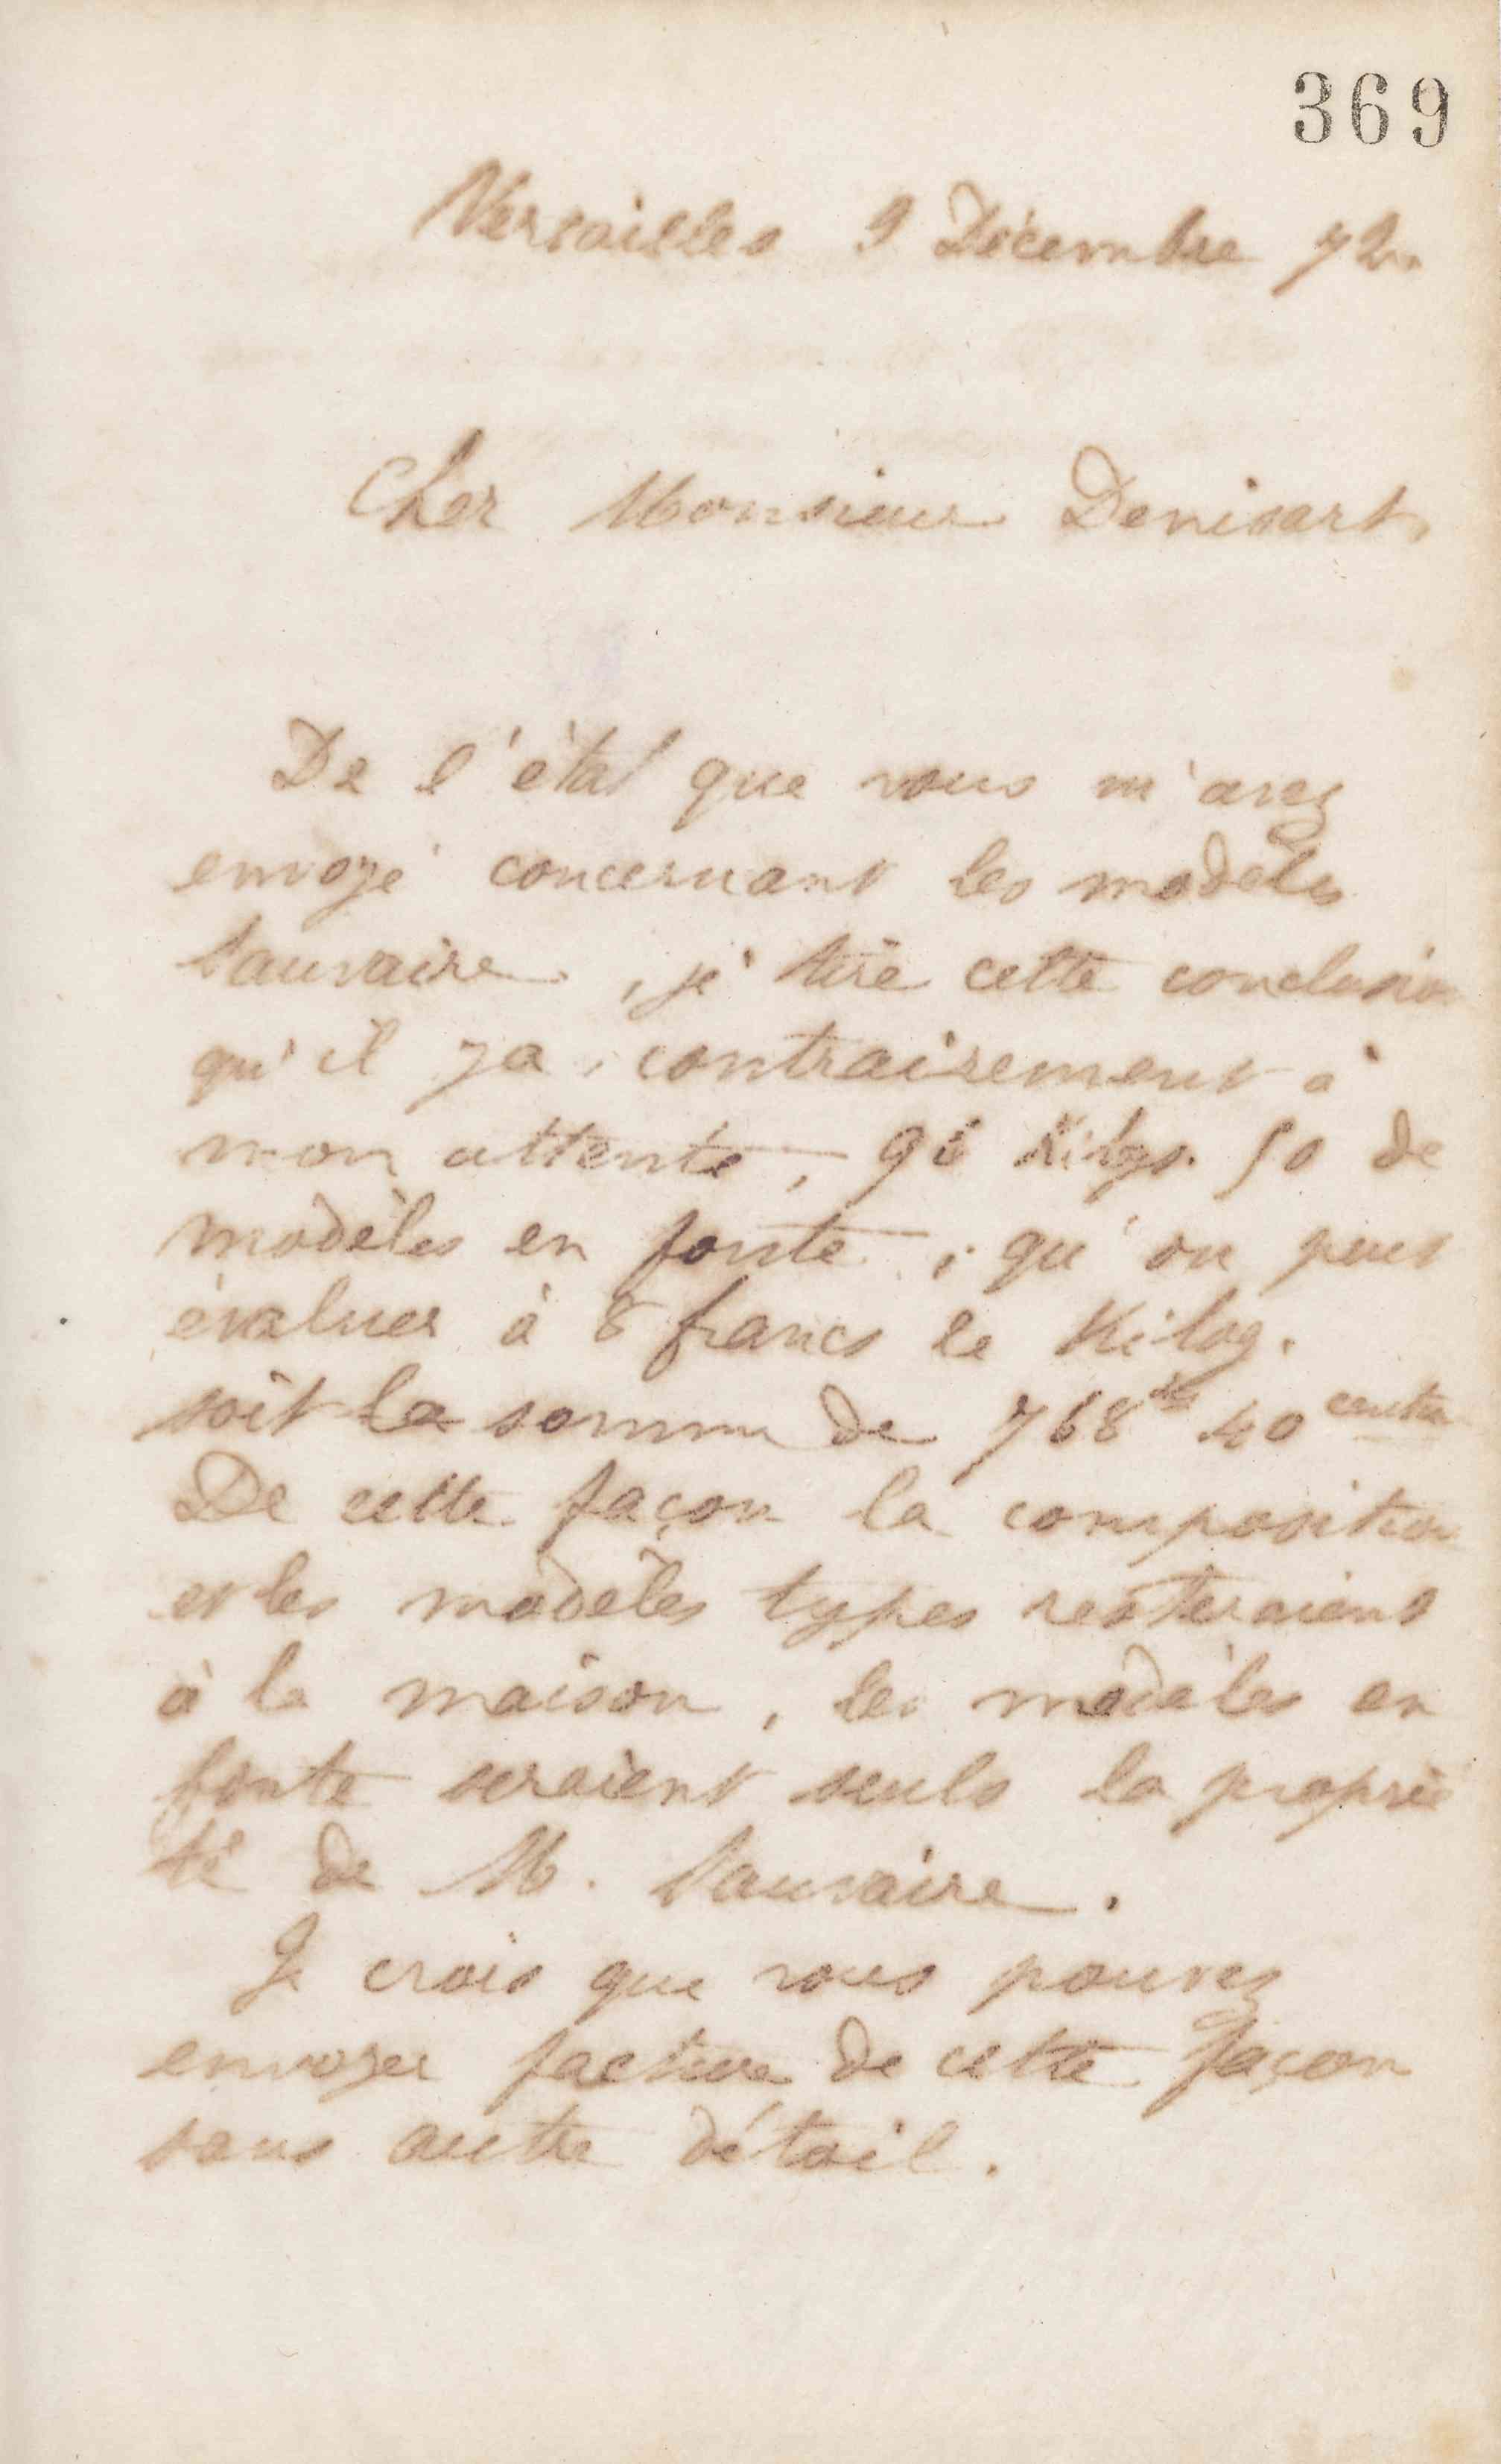 369
Versailles 9 Décembre 72.
Cher Monsieur Denisart,
De l'état que vous m'avez
envoyé concernant les modèles
Sauvaire, je tire cette conclusion
qu'il y a, contrairement à
mon attente, 96 Kilogs. 50 de
modèles en fonte, qu'on peut
évaluer à 8 francs le Kilog.
soit la somme de 768 40
De cette façon la composition
et les modèles types resteraient
à la maison, les modèles en
fonte seraient seuls la proprié
té de M. Sauvaire.
Je crois que vous pouvez
envoyer facture de cette façon
sans autre détail.